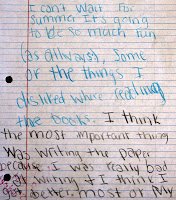 I can't wait for
summer It's going
to be so much fun
(as allways), Some
of the things I
disliked where reading
the books. I think
the most important thing
was writing the paper
because I was really bad
at writing & I think I
got better. most of my